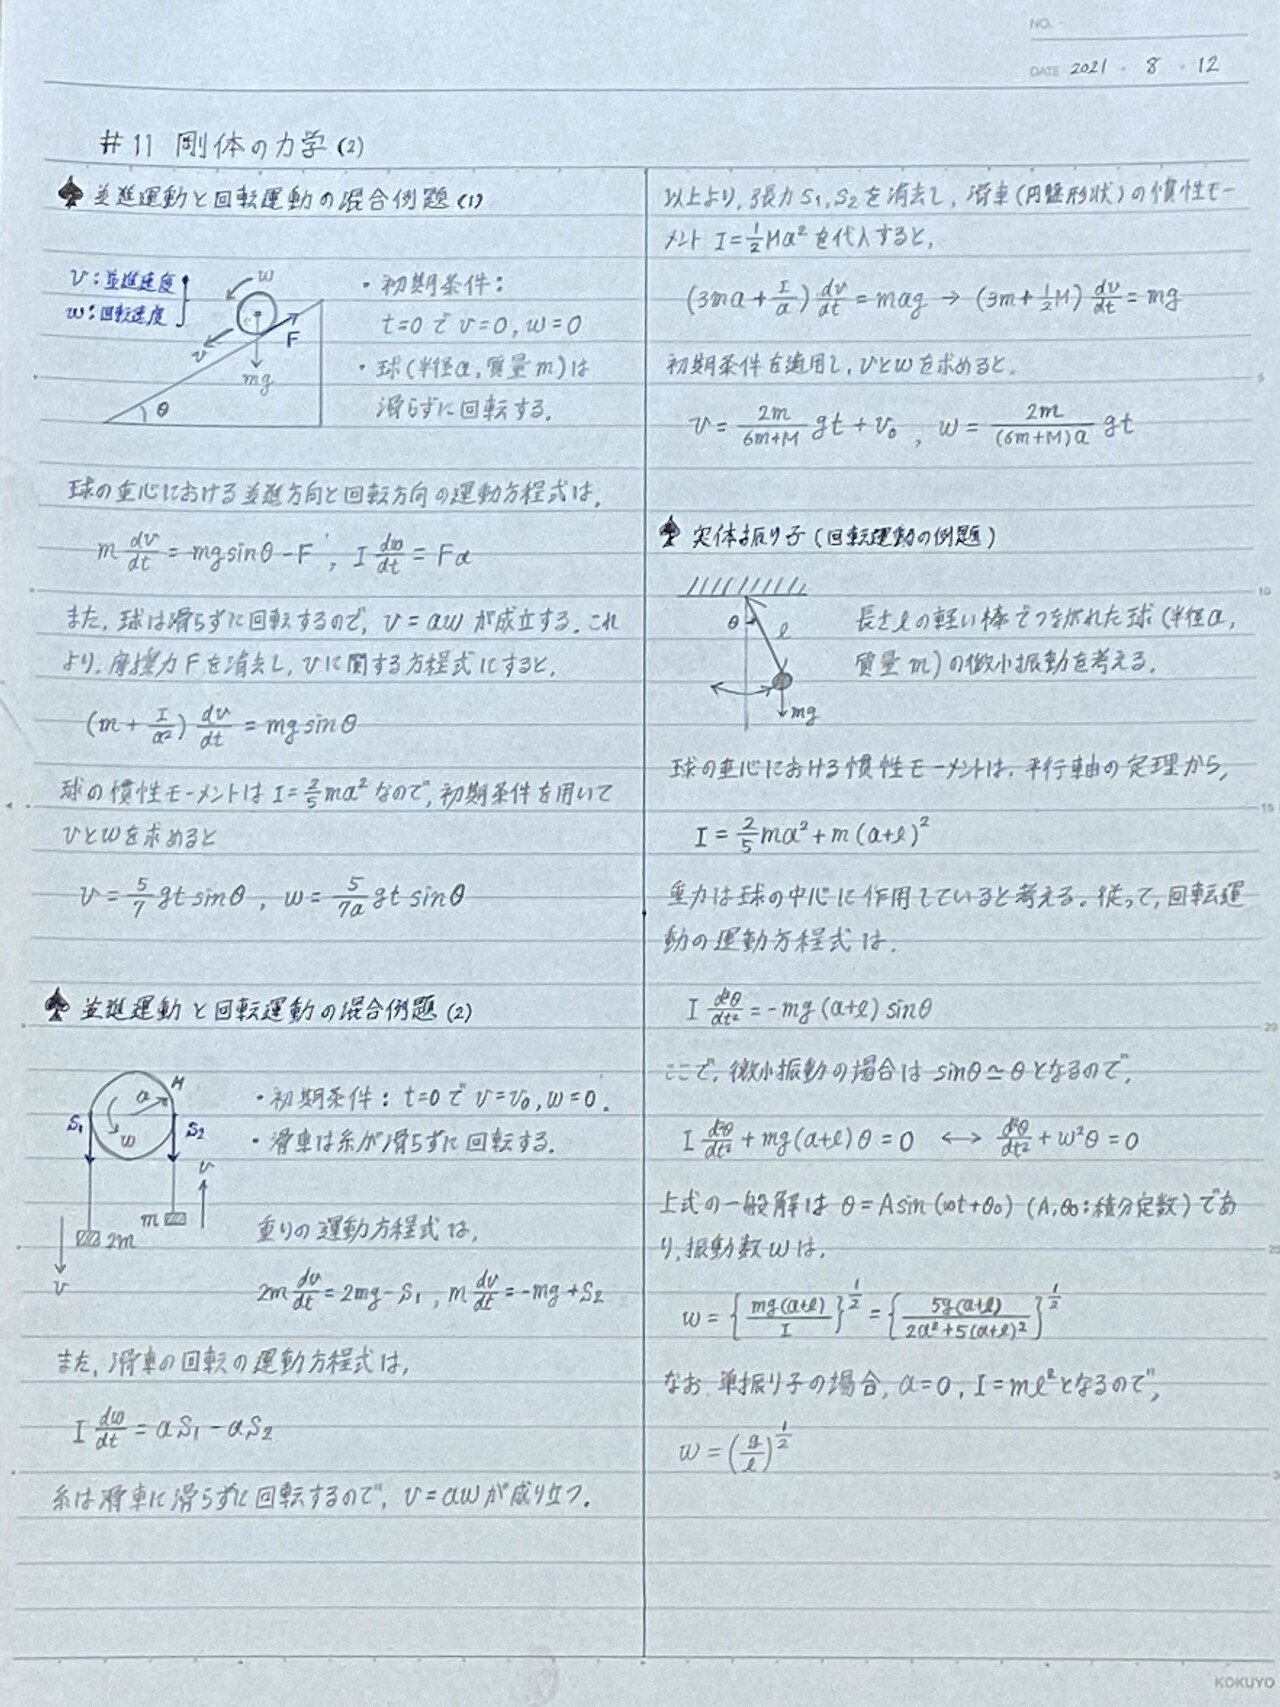 NO.
DATE 2021 ・ 8 ・ 12
#11 剛体の力学(2)
♠ 並進運動と回転運動の混合例題(1)
v:並進速度
ω:回転速度
ω
v
F
mg
θ
・初期条件:
t=0で v=0, ω=0
・球(半径a,質量m)は
滑らずに回転する.
球の重心における並進方向と回転方向の運動方程式は,
m dv/dt = mg sinθ - F , I dω/dt = Fa
また,球は滑らずに回転するので, v = aω が成立する.これ
より,摩擦力Fを消去し,vに関する方程式にすると,
(m + I/a²) dv/dt = mg sinθ
球の慣性モーメントは I=2/5 ma² なので,初期条件を用いて
vとωを求めると
v = 5/7 gt sinθ , ω = 5/7a gt sinθ
♠ 並進運動と回転運動の混合例題(2)
M
a
S₁
ω
S₂
v
m
2m
v
・初期条件: t=0で v=v₀, ω=0.
・滑車は糸が滑らずに回転する.
重りの運動方程式は,
2m dv/dt = 2mg - S₁ , m dv/dt = -mg + S₂
また,滑車の回転の運動方程式は,
I dω/dt = aS₁ - aS₂
糸は滑車に滑らずに回転するので, v = aω が成り立つ.
以上より,張力S₁,S₂を消去し,滑車(円盤形状)の慣性モー
メント I = 1/2 Ma² を代入すると,
(3ma + I/a) dv/dt = mag → (3m + 1/2 M) dv/dt = mg
初期条件を適用し,vとωを求めると,
v = 2m/(6m+M) gt + v₀ , ω = 2m/((6m+M)a) gt
♠ 実体振り子(回転運動の例題)
θ
l
mg
長さlの軽い棒でつながれた球(半径a,
質量m)の微小振動を考える.
球の重心における慣性モーメントは,平行軸の定理から,
I = 2/5 ma² + m(a+l)²
重力は球の中心に作用していると考える.従って,回転運
動の運動方程式は,
I d²θ/dt² = -mg(a+l) sinθ
ここで,微小振動の場合は sinθ ≃ θ となるので,
I d²θ/dt² + mg(a+l)θ = 0 ⟷ d²θ/dt² + ω²θ = 0
上式の一般解は θ = A sin(ωt+θ₀) (A,θ₀:積分定数)であ
り,振動数ωは,
ω = {mg(a+l)/I}^1/2 = {5g(a+l)/(2a²+5(a+l)²)}^1/2
なお,単振り子の場合, a=0, I=ml² となるので,
ω = (g/l)^1/2
5
10
15
20
25
KOKUYO